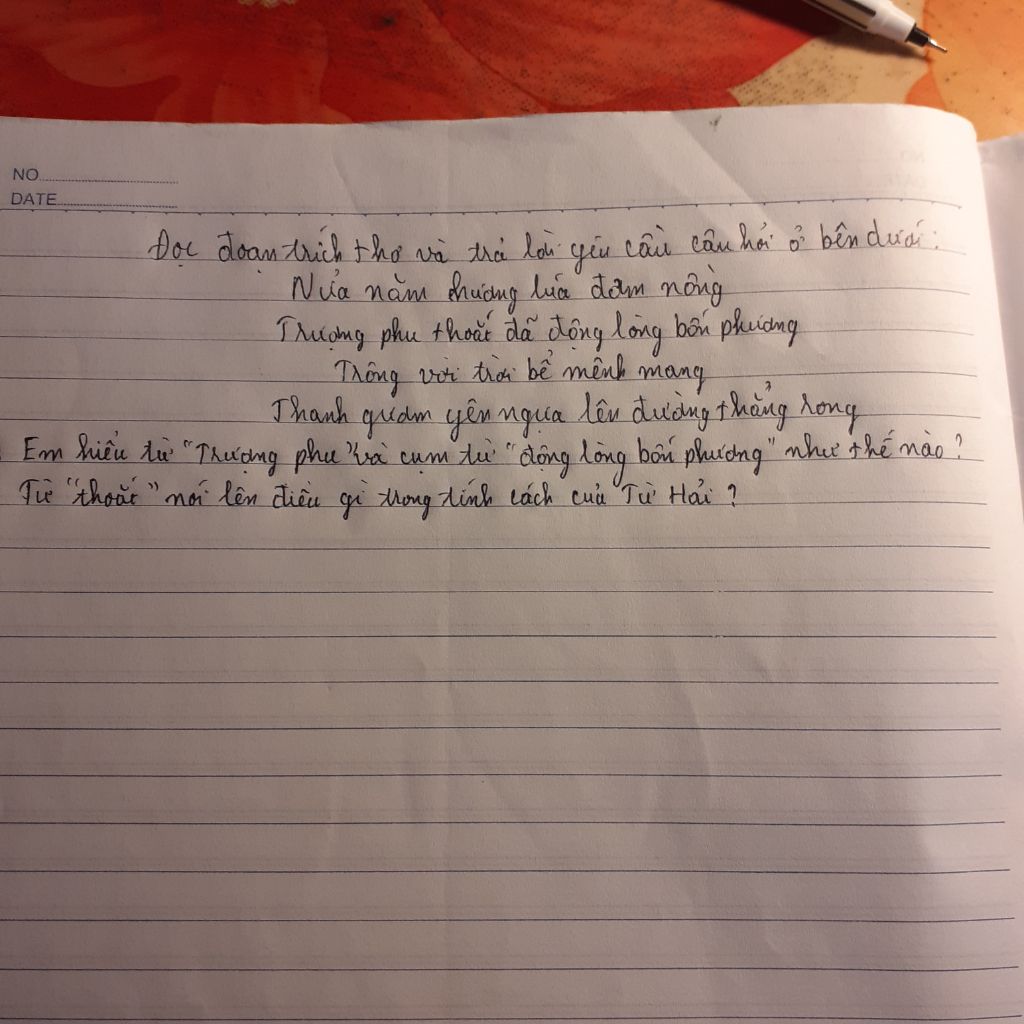 NO
DATE
Đọc đoạn trích thơ và trả lời yêu cầu câu hỏi ở bên dưới:
Nửa năm hương lửa đơm nồng
Trượng phu thoắt đã động lòng bốn phương
Trông vời trời bể mênh mang
Thanh gươm yên ngựa lên đường thẳng rong
Em hiểu từ "Trượng phu" và cụm từ "động lòng bốn phương" như thế nào?
Từ "thoắt" nói lên điều gì trong tính cách của Từ Hải?